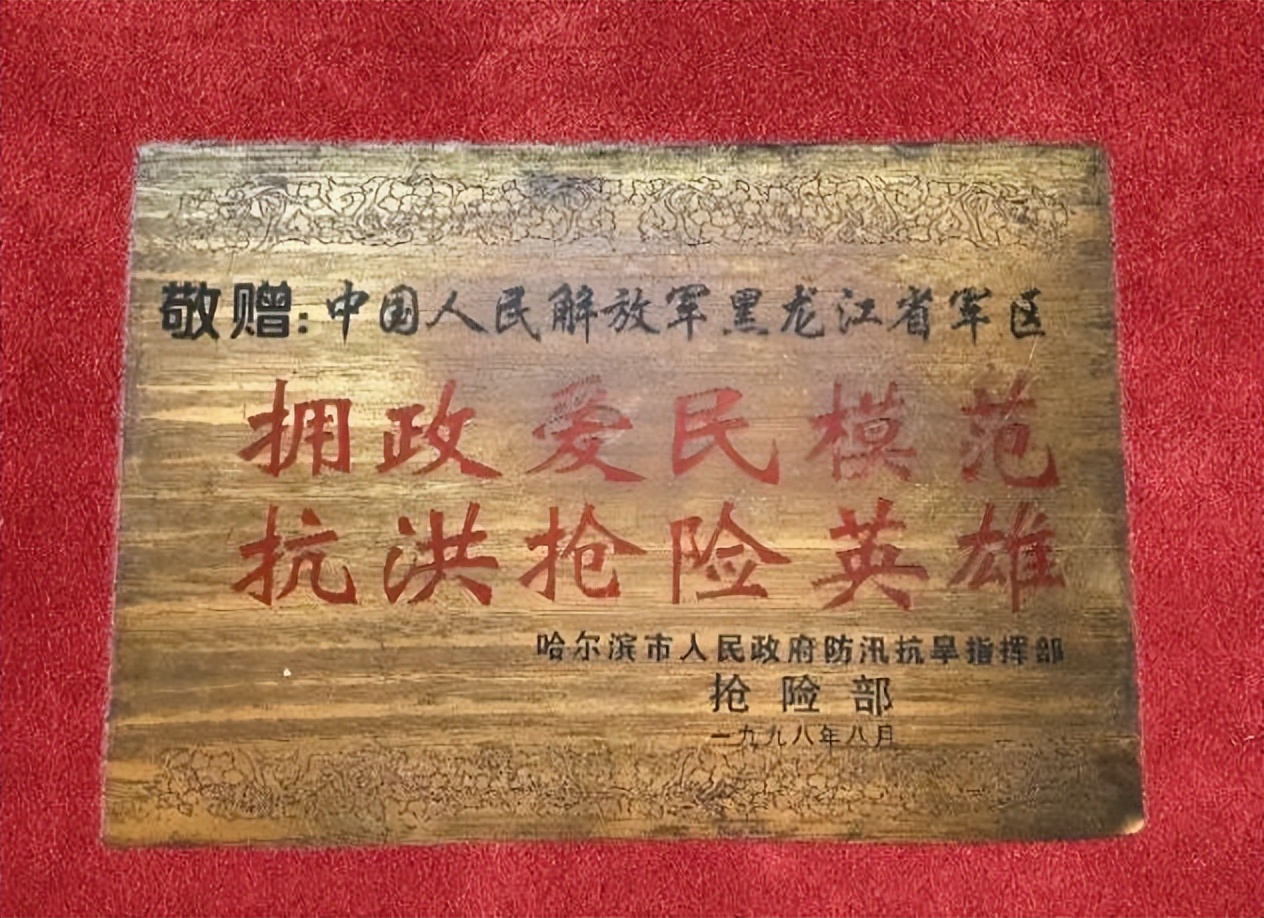 敬赠:中国人民解放军黑龙江省军区
拥政爱民模范
抗洪抢险英雄
哈尔滨市人民政府防汛抗旱指挥部
抢险部
一九九八年八月